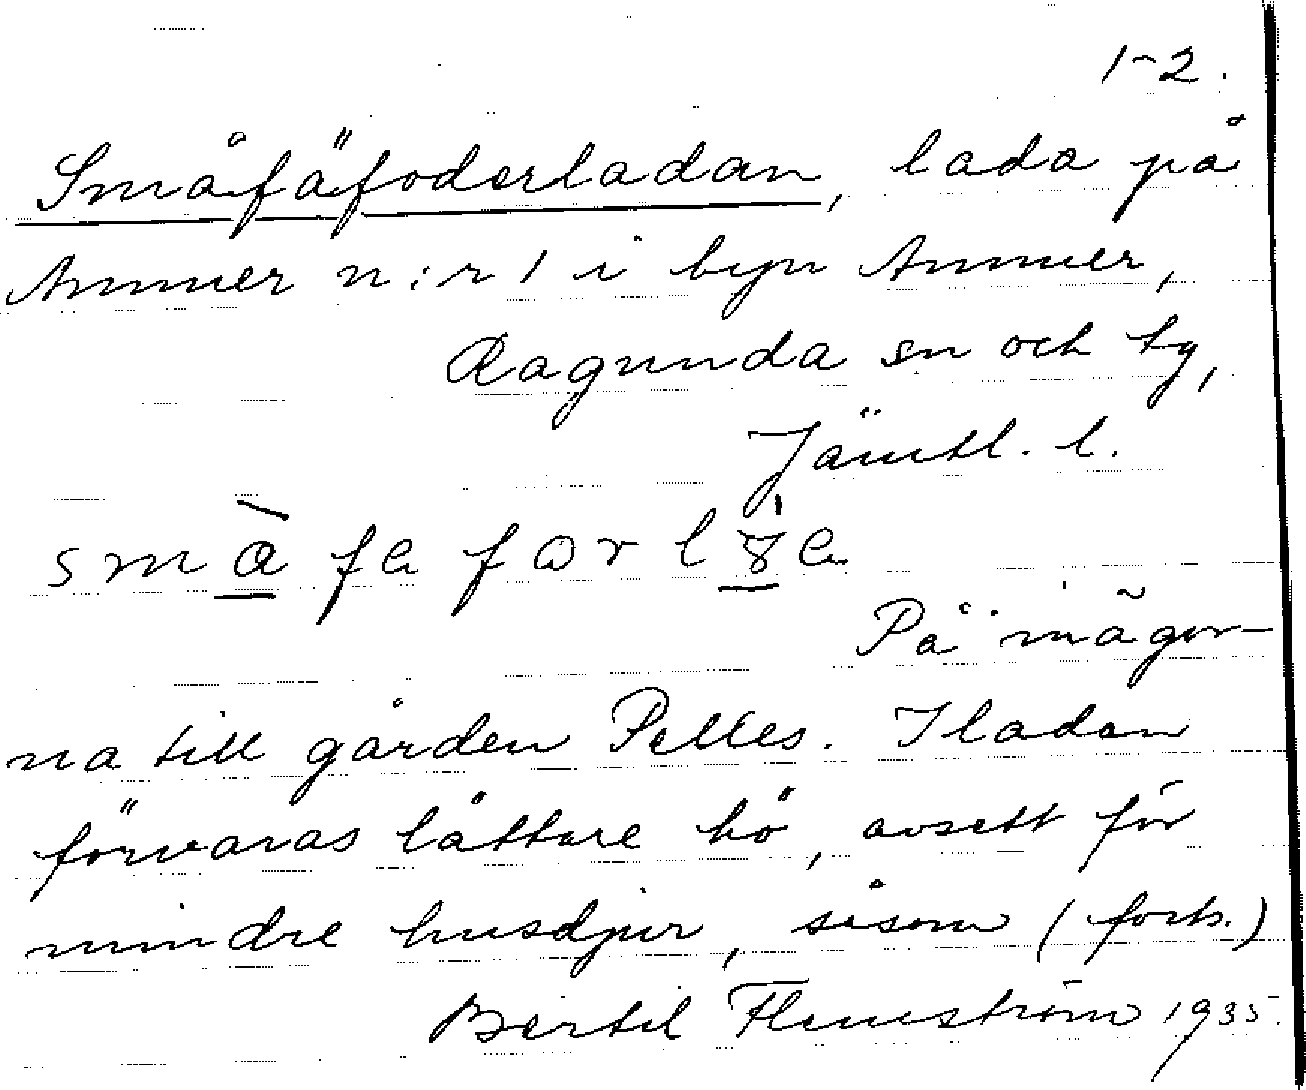 1-2.
Småfäfoderladan, lada på
Ammer n:r 1 i byn Ammer,
Ragunda sn och tg,
Jämtl. l.
På mågor-
na till gården Pelles. I ladan
förvaras lättare hö, avsett för
mindre husdjur, såsom (forts.)
Bertil Flemström 1935.